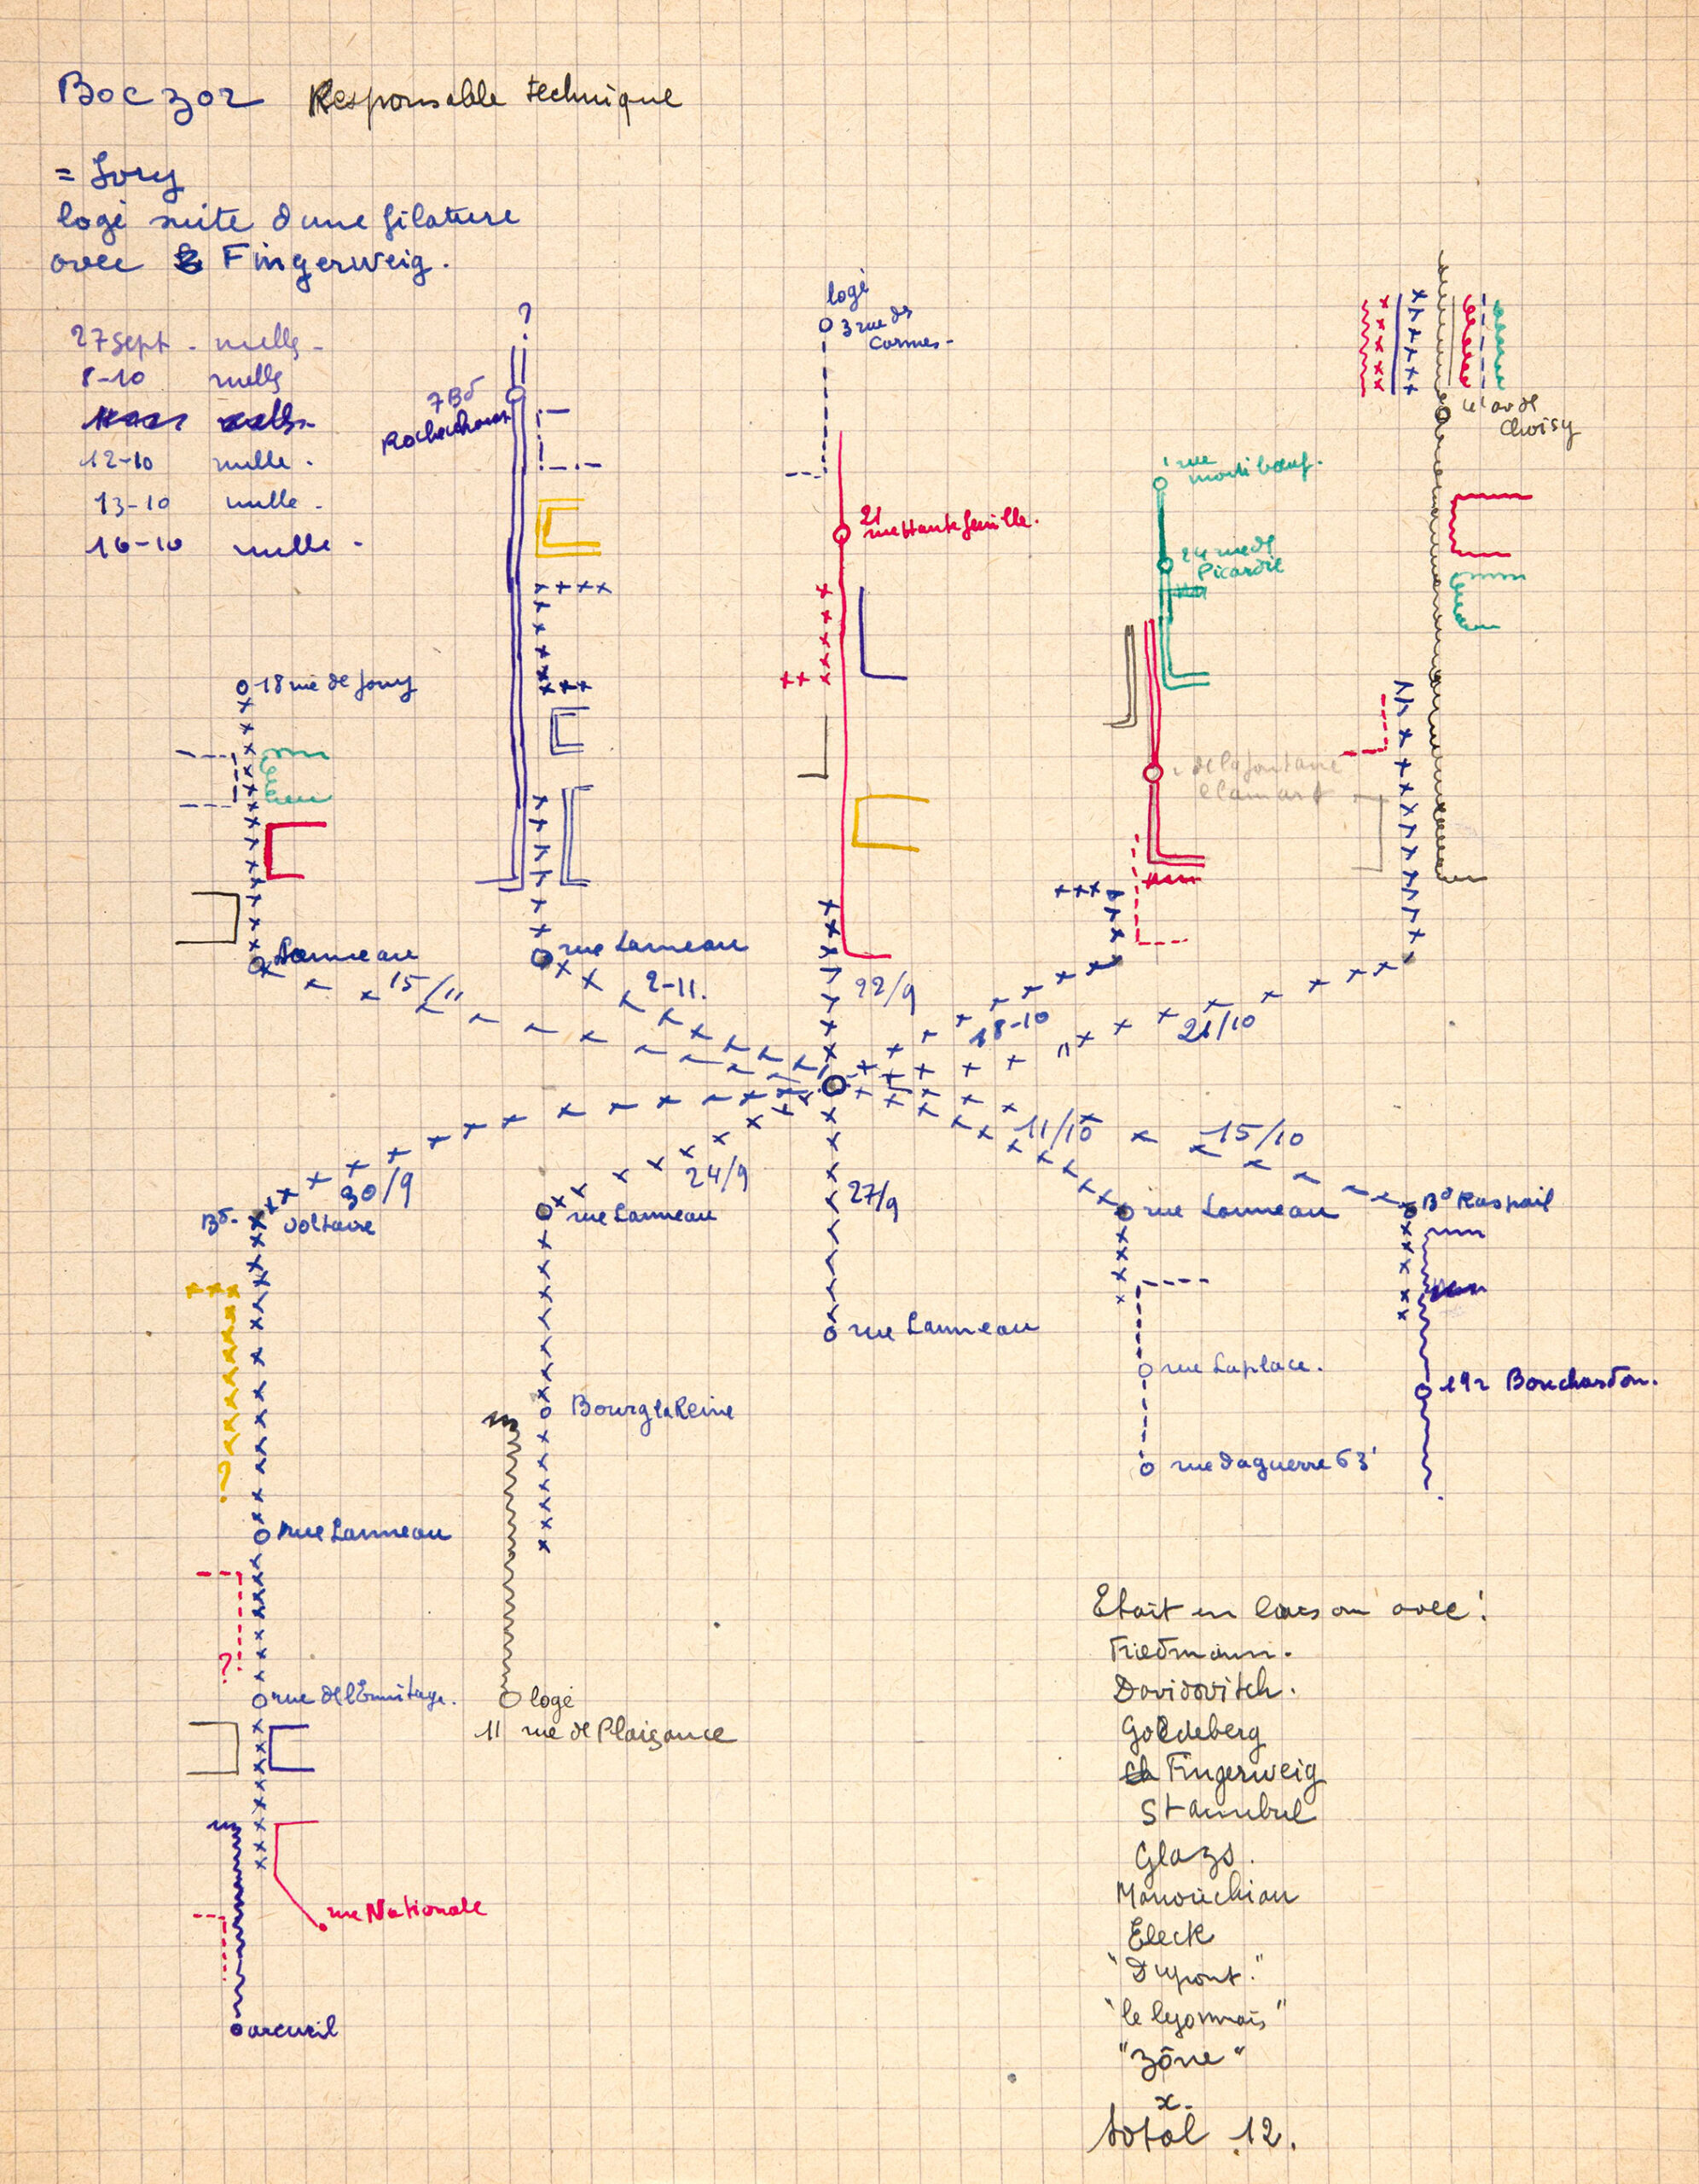 Boczor Responsable technique
= Ivry
logé suite d'une filature
avec Fingerweig.
27 sept - nulle -
8-10 nulle
12-10 nulle -
13-10 nulle -
16-10 nulle -
?
7 Bd
Rochechouart
logé
3 rue des
Carmes -
21
rue Hautefeuille.
1 rue
montiboeuf.
24 rue de
Picardie
av de
Choisy
18 rue de Jouy
de la fontaine
Clamart
Lanneau
rue Lanneau
15/11
2-11.
22/9
18-10
21/10
11/10
15/10
30/9
24/9
27/9
Bd. Voltaire
rue Lanneau
rue Lanneau
Bd Raspail
rue Lanneau
rue Laplace.
192 Bouchardon.
Bourg la Reine
rue Daguerre 63
?
rue Lanneau
?
rue de l'Ermitage.
logé
11 rue de Plaisance
rue Nationale
arcueil
Etait en liaison avec :
Friedmann.
Davidovitch.
Goldeberg
Fingerweig
Stambul
Glazs.
Manouchian
Eleck
"Dupont."
"le lyonnais"
"zône"
x.
total 12.